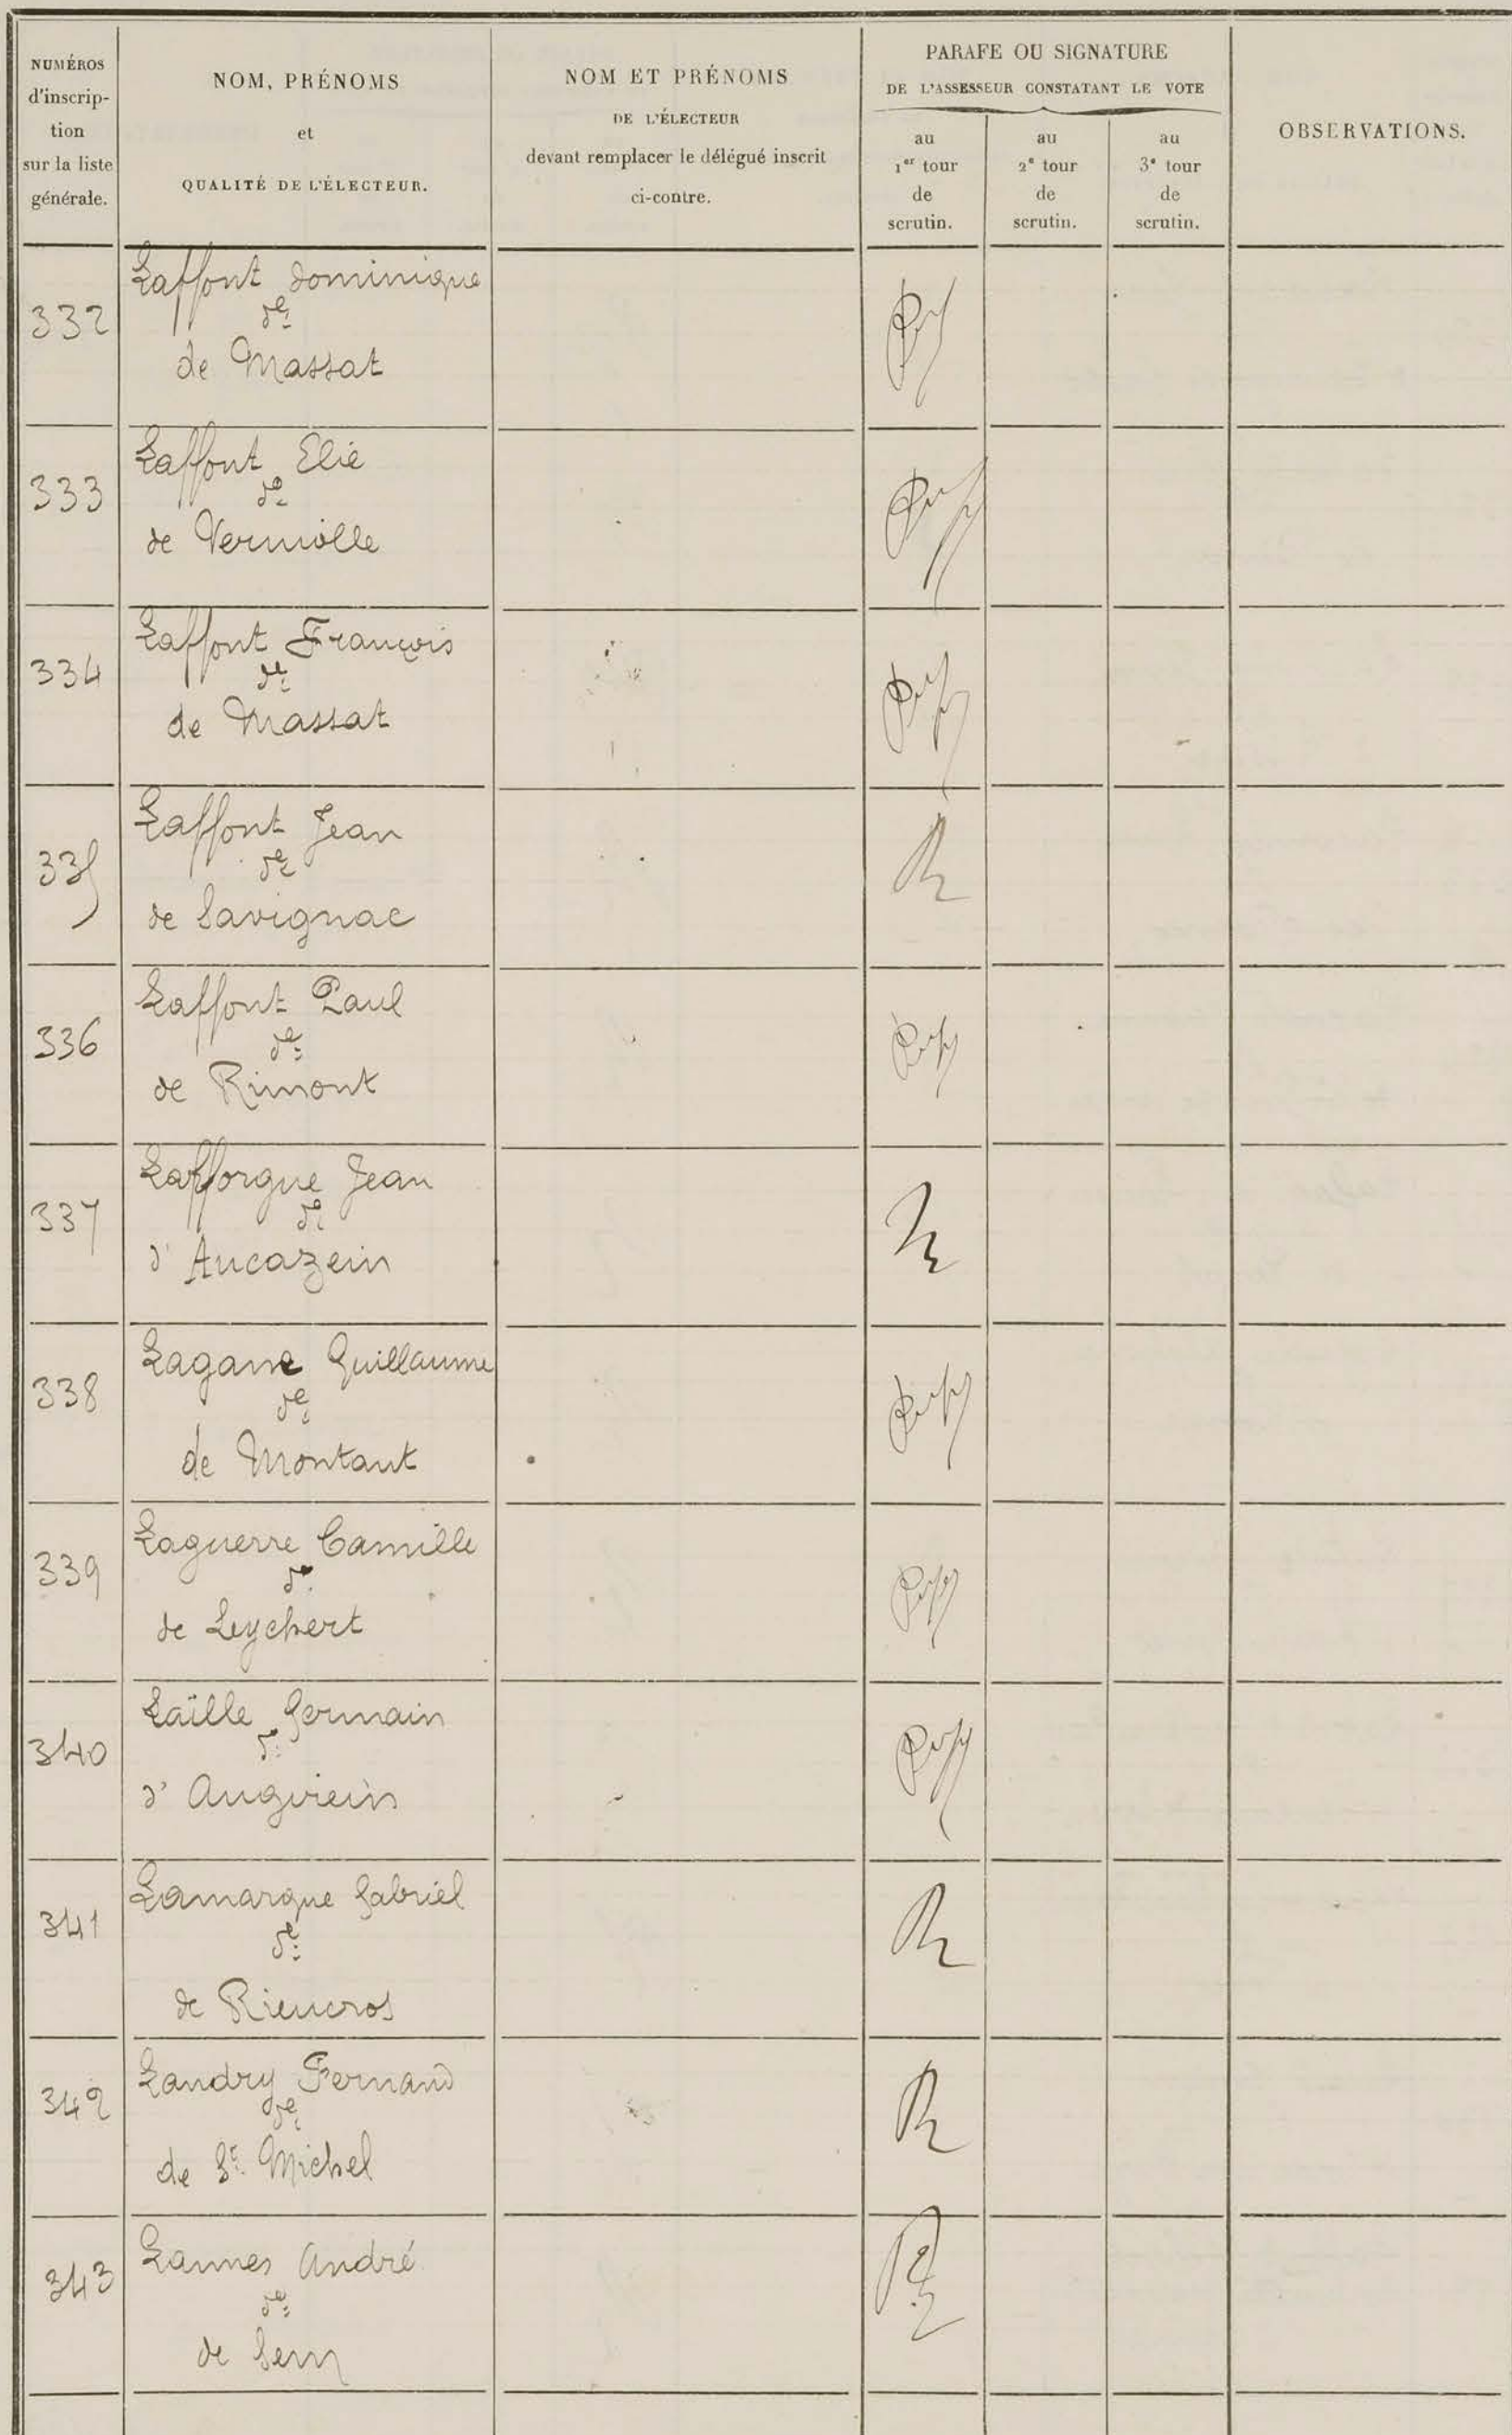 NUMÉROS
d'inscrip-
tion
sur la liste
générale.
NOM, PRÉNOMS
et
QUALITÉ DE L'ÉLECTEUR.
NOM ET PRÉNOMS
DE L'ÉLECTEUR
devant remplacer le délégué inscrit
ci-contre.
PARAFE OU SIGNATURE
DE L'ASSESSEUR CONSTATANT LE VOTE
au
1er tour
de
scrutin.
au
2e tour
de
scrutin.
au
3e tour
de
scrutin.
OBSERVATIONS.
332
Laffont Dominique
de
de Massat
333
Laffont Elie
do
de Verniolle
334
Laffont François
de
de Massat
335
Laffont Jean
de
de Savignac
336
Laffont Paul
de
de Rimont
337
Lafforgue Jean
do
d'Aucazein
338
Lagane Guillaume
de
de Montaut
339
Laguerre Camille
de Leychert
340
Laïlle Germain
d'Augirein
341
Lamarque Gabriel
de
de Rieucros
342
Landry Fernand
de
de St Michel
343
Lannes André
de
de Sem